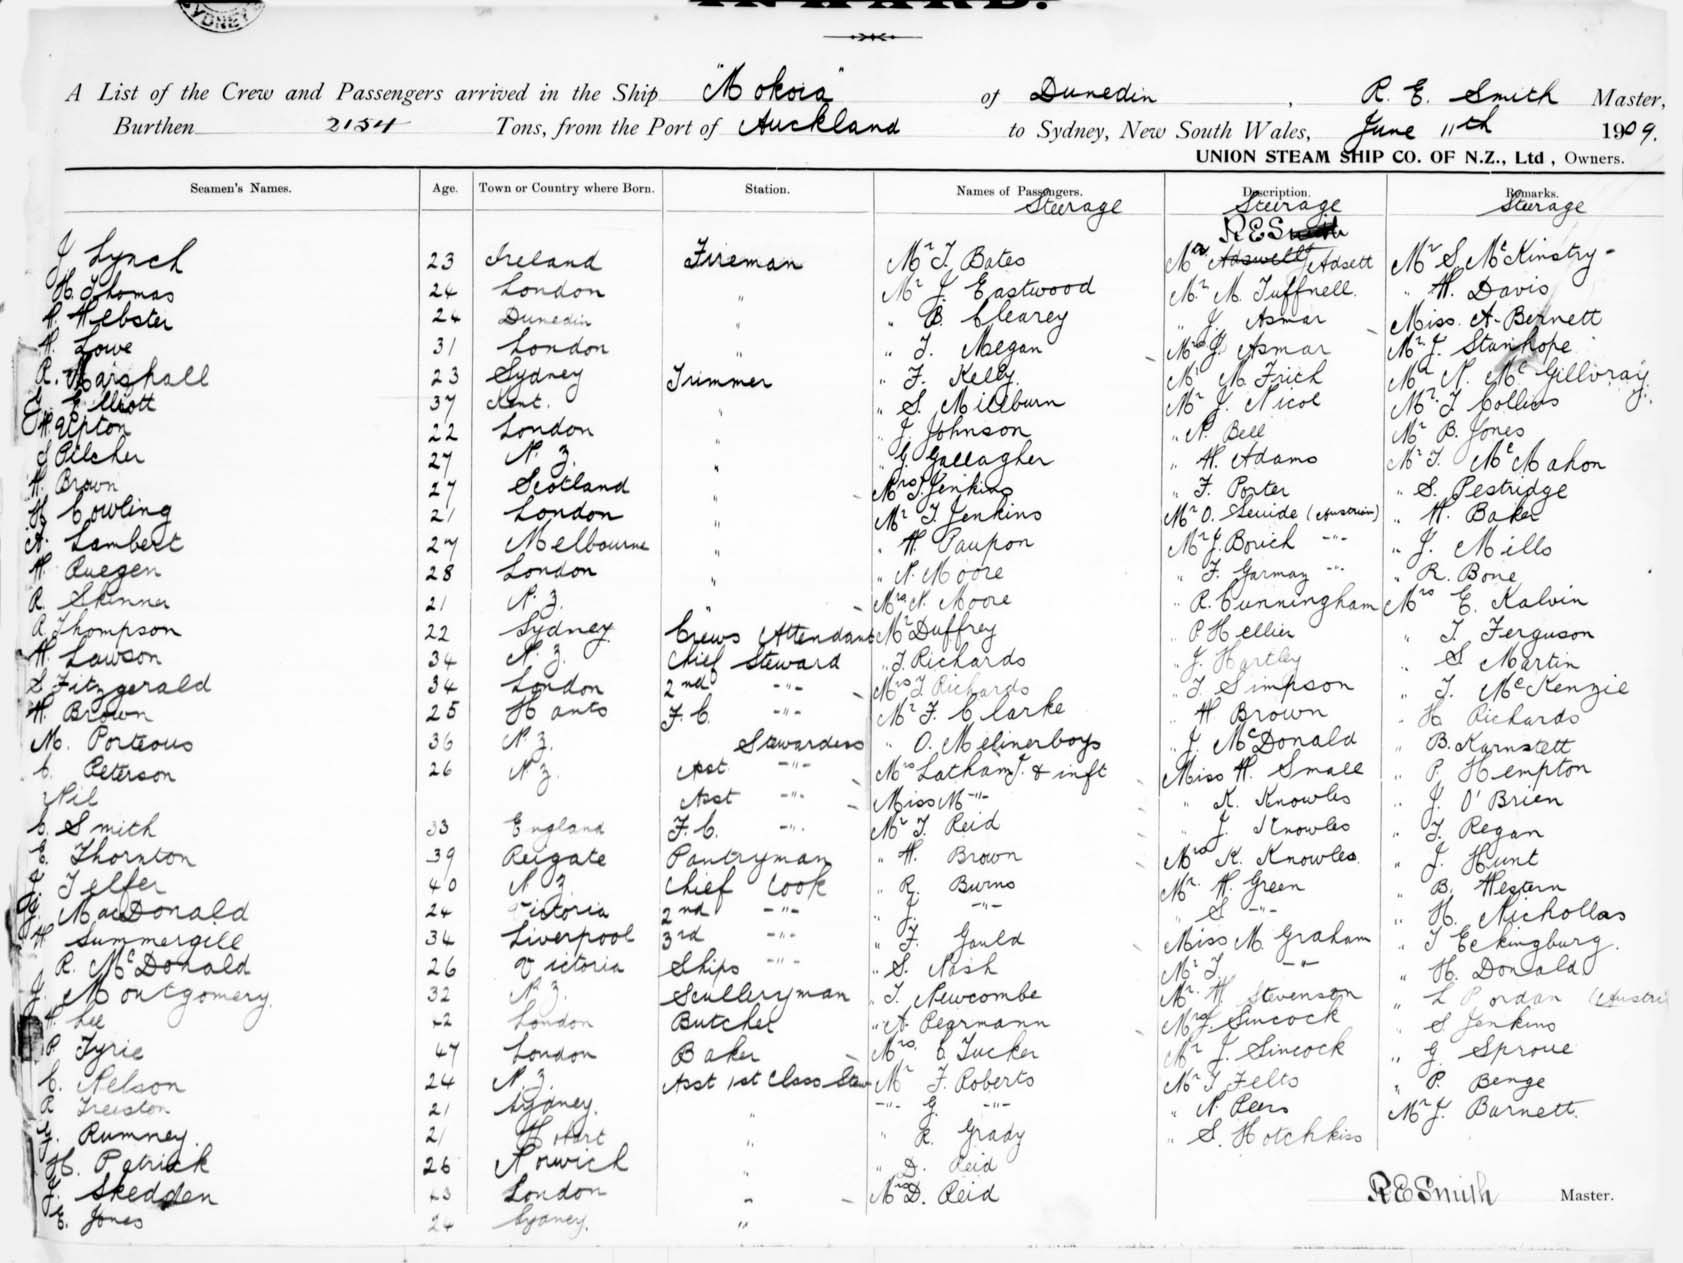 SYDNEY
INWARD.
A List of the Crew and Passengers arrived in the Ship "Mokoia" of Dunedin, R. E. Smith Master,
Burthen 2154 Tons, from the Port of Auckland to Sydney, New South Wales, June 11th 1909.
UNION STEAM SHIP CO. OF N.Z., Ltd, Owners.
Seamen's Names. Age. Town or Country where Born. Station. Names of Passengers. Description. Remarks.
Steerage Steerage Steerage
R E Smith
J Lynch 23 Ireland Fireman Mr T. Bates Mr Adsett Mr S. McKinstry
H. Thomas 24 London " Mr J. Eastwood Mr M. Tuffnell. " H. Davis
H. Webster 24 Dunedin " " B. Clearey " J. Asmar Miss. A. Bennett
H. Lowe 31 London " " T. Megan Mrs J. Asmar Mr J. Stanhope
R. Marshall 23 Sydney Trimmer " F. Kelly. Mr M. Frich Mr N. McGillvray
E. Elliott 37 Kent. " " S. Millburn Mr J. Nicol Mr. T. Collins
H. Upton 22 London " " J. Johnson " N. Bell Mr B. Jones
S Pilcher 27 N. Z. " " G. Gallagher " H. Adams Mr T. McMahon
H. Brown 27 Scotland " Mrs T. Jenkins " F. Porter " S. Pestridge
H. Cowling 21 London " Mr T. Jenkins Mr O. (Austrian) " H. Baker
A. Lambert 27 Melbourne " " H. Paupon Mr J. Bovich -"- " J. Mills
H. Ruegen 28 London " " N. Moore " F. Garmaz -"- " R. Bone
R. Skinner 21 N. Z. " Mrs N. Moore " R. Cunningham Mrs E. Kalvin
R Thompson 22 Sydney Crews Attendant Mr Duffrey " P Hellier " T. Ferguson
H. Lawson 34 N. Z. Chief Steward " T. Richards " J. Hartley " S. Martin
S Fitzgerald 34 London 2nd -"- Mrs T. Richards " T Simpson " J. McKenzie
H. Brown 25 Hants F. C. -"- Mr F. Clarke " H Brown " H. Richards
M. Porteous 36 N. Z. Stewardess " O. Melinerboys " J. McDonald " B. Karnstett
C. Peterson 26 N. Z. Asst -"- Mrs Latham J. & inft Miss H. Small " P. Hempton
Nil Asst -"- Miss M -"- " K. Knowles " J. O'Brien
C. Smith 33 England F. C. -"- Mr T. Reid " J. Knowles " T. Regan
E. Thornton 39 Reigate Pantryman " H. Brown Mrs K. Knowles. " J. Hunt
J. Telfer 40 N. Z. Chief Cook " R. Burns Mr. H. Green " B. Western
J. MacDonald 24 Victoria 2nd -"- " J. -"- " S -"- " H. Nichollas
H Summergill 34 Liverpool 3rd -"- " F. Gauld Miss M. Graham " T Eckingburg.
R. McDonald 26 Victoria Ships -"- " S. Nash Mr T. -"- " H. Donald
J. Montgomery 32 N. Z. Scullery man " T. Newcombe Mr. H Stevenson " L Pordan (Austri
H. Lee 42 London Butcher " A. Pearmann Mrs J. Sincock " S Jenkins
P. Fyrie 47 London Baker Mrs. C. Tucker Mr J. Sincock " G. Sproue
C. Nelson 24 N. Z. Asst 1st Class Stew Mr F. Roberts Mr T Felts " P. Benge
R Treiston 21 Sydney. " -"- G. -"- " N. Peers Mr J. Barnett.
G. Rumney. 21 Hobart " " R. Grady " S. Hotchkiss
H. Patrick 26 Norwich " " D. Reid
J. Skedden 23 London " Mrs D. Reid R E Smith Master.
E. Jones 24 Sydney. "